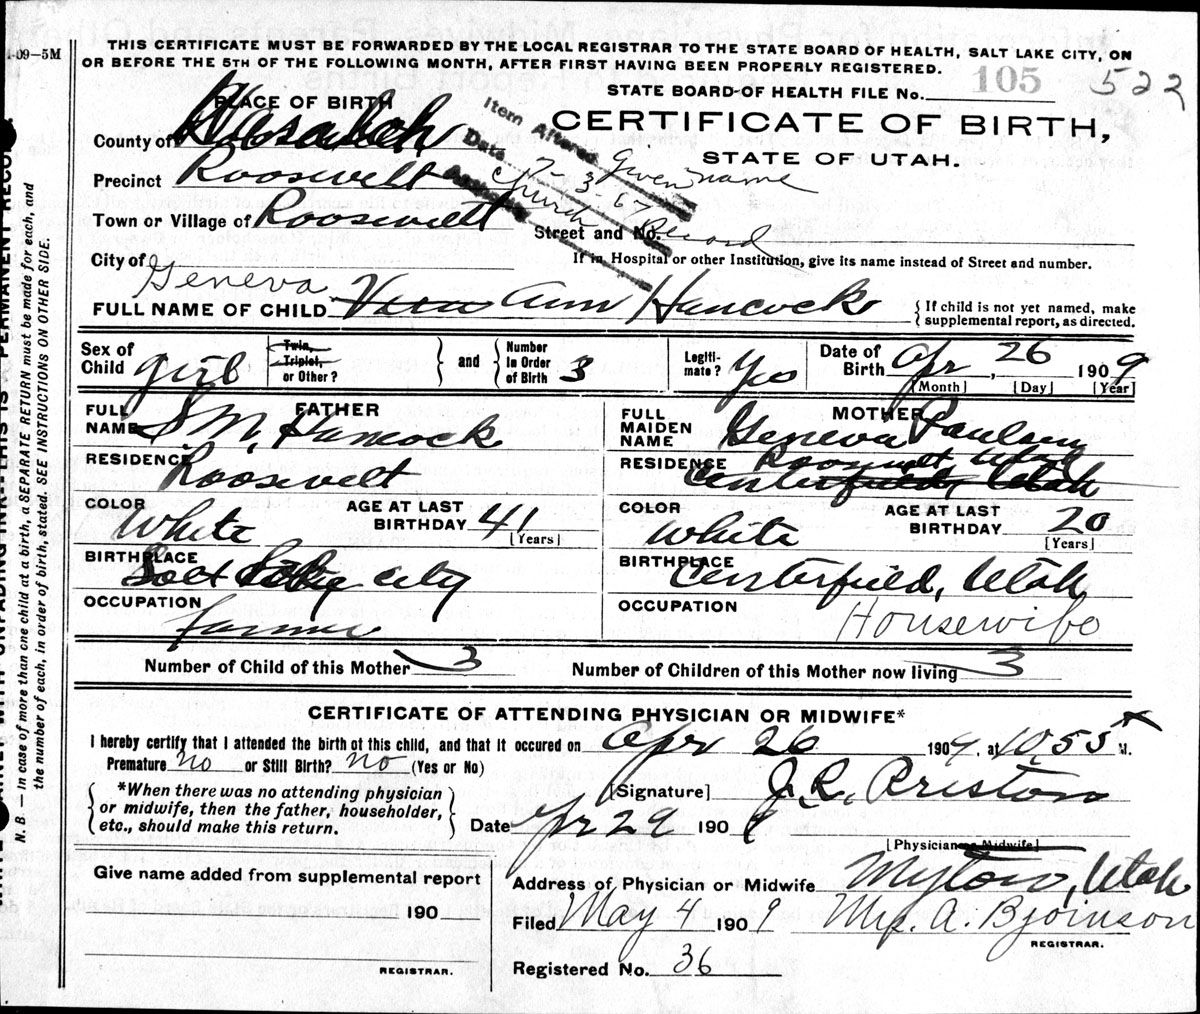 1-09-5M
THIS CERTIFICATE MUST BE FORWARDED BY THE LOCAL REGISTRAR TO THE STATE BOARD OF HEALTH, SALT LAKE CITY, ON
OR BEFORE THE 5TH OF THE FOLLOWING MONTH, AFTER FIRST HAVING BEEN PROPERLY REGISTERED.
STATE BOARD OF HEALTH FILE No. 105 522
PLACE OF BIRTH
CERTIFICATE OF BIRTH,
STATE OF UTAH.
County of Wasatch
Precinct Roosevelt
Town or Village of Roosevelt
Street and No.
City of
If in Hospital or other Institution, give its name instead of Street and number.
Item Altered Given name
Date 7-3-67
Authority Church Record
Geneva
FULL NAME OF CHILD Vera Ann Hancock
{ If child is not yet named, make
supplemental report, as directed.
Sex of Child girl
Twin, Triplet, or Other?
and
Number in Order of Birth 3
Legitimate? Yes
Date of Birth Apr 26 1909
[Month] [Day] [Year]
FATHER
FULL NAME S. M. Hancock
RESIDENCE Roosevelt
COLOR White
AGE AT LAST BIRTHDAY 41
[Years]
BIRTHPLACE Salt Lake City
OCCUPATION farmer
MOTHER
FULL MAIDEN NAME Geneva Paulsen
RESIDENCE Roosevelt Utah
Centerfield, Utah
COLOR White
AGE AT LAST BIRTHDAY 20
[Years]
BIRTHPLACE Centerfield, Utah
OCCUPATION Housewife
Number of Child of this Mother 3
Number of Children of this Mother now living 3
CERTIFICATE OF ATTENDING PHYSICIAN OR MIDWIFE*
I hereby certify that I attended the birth of this child, and that it occured on Apr 26 1909. at 10 55 M.
Premature no or Still Birth? no (Yes or No)
*When there was no attending physician
or midwife, then the father, householder,
etc., should make this return.
[Signature] J. R. Preston
Date Apr 29 190
[Physician or Midwife]
Address of Physician or Midwife Myton, Utah
Filed May 4 1909 Mrs. A. Bjornson
REGISTRAR.
Registered No. 36
Give name added from supplemental report
190
REGISTRAR.
N. B. — In case of more than one child at a birth, a SEPARATE RETURN must be made for each, and
the number of each, in order of birth, stated. SEE INSTRUCTIONS ON OTHER SIDE.
WITH UNFADING INK—THIS IS PERMANENT RECORD.